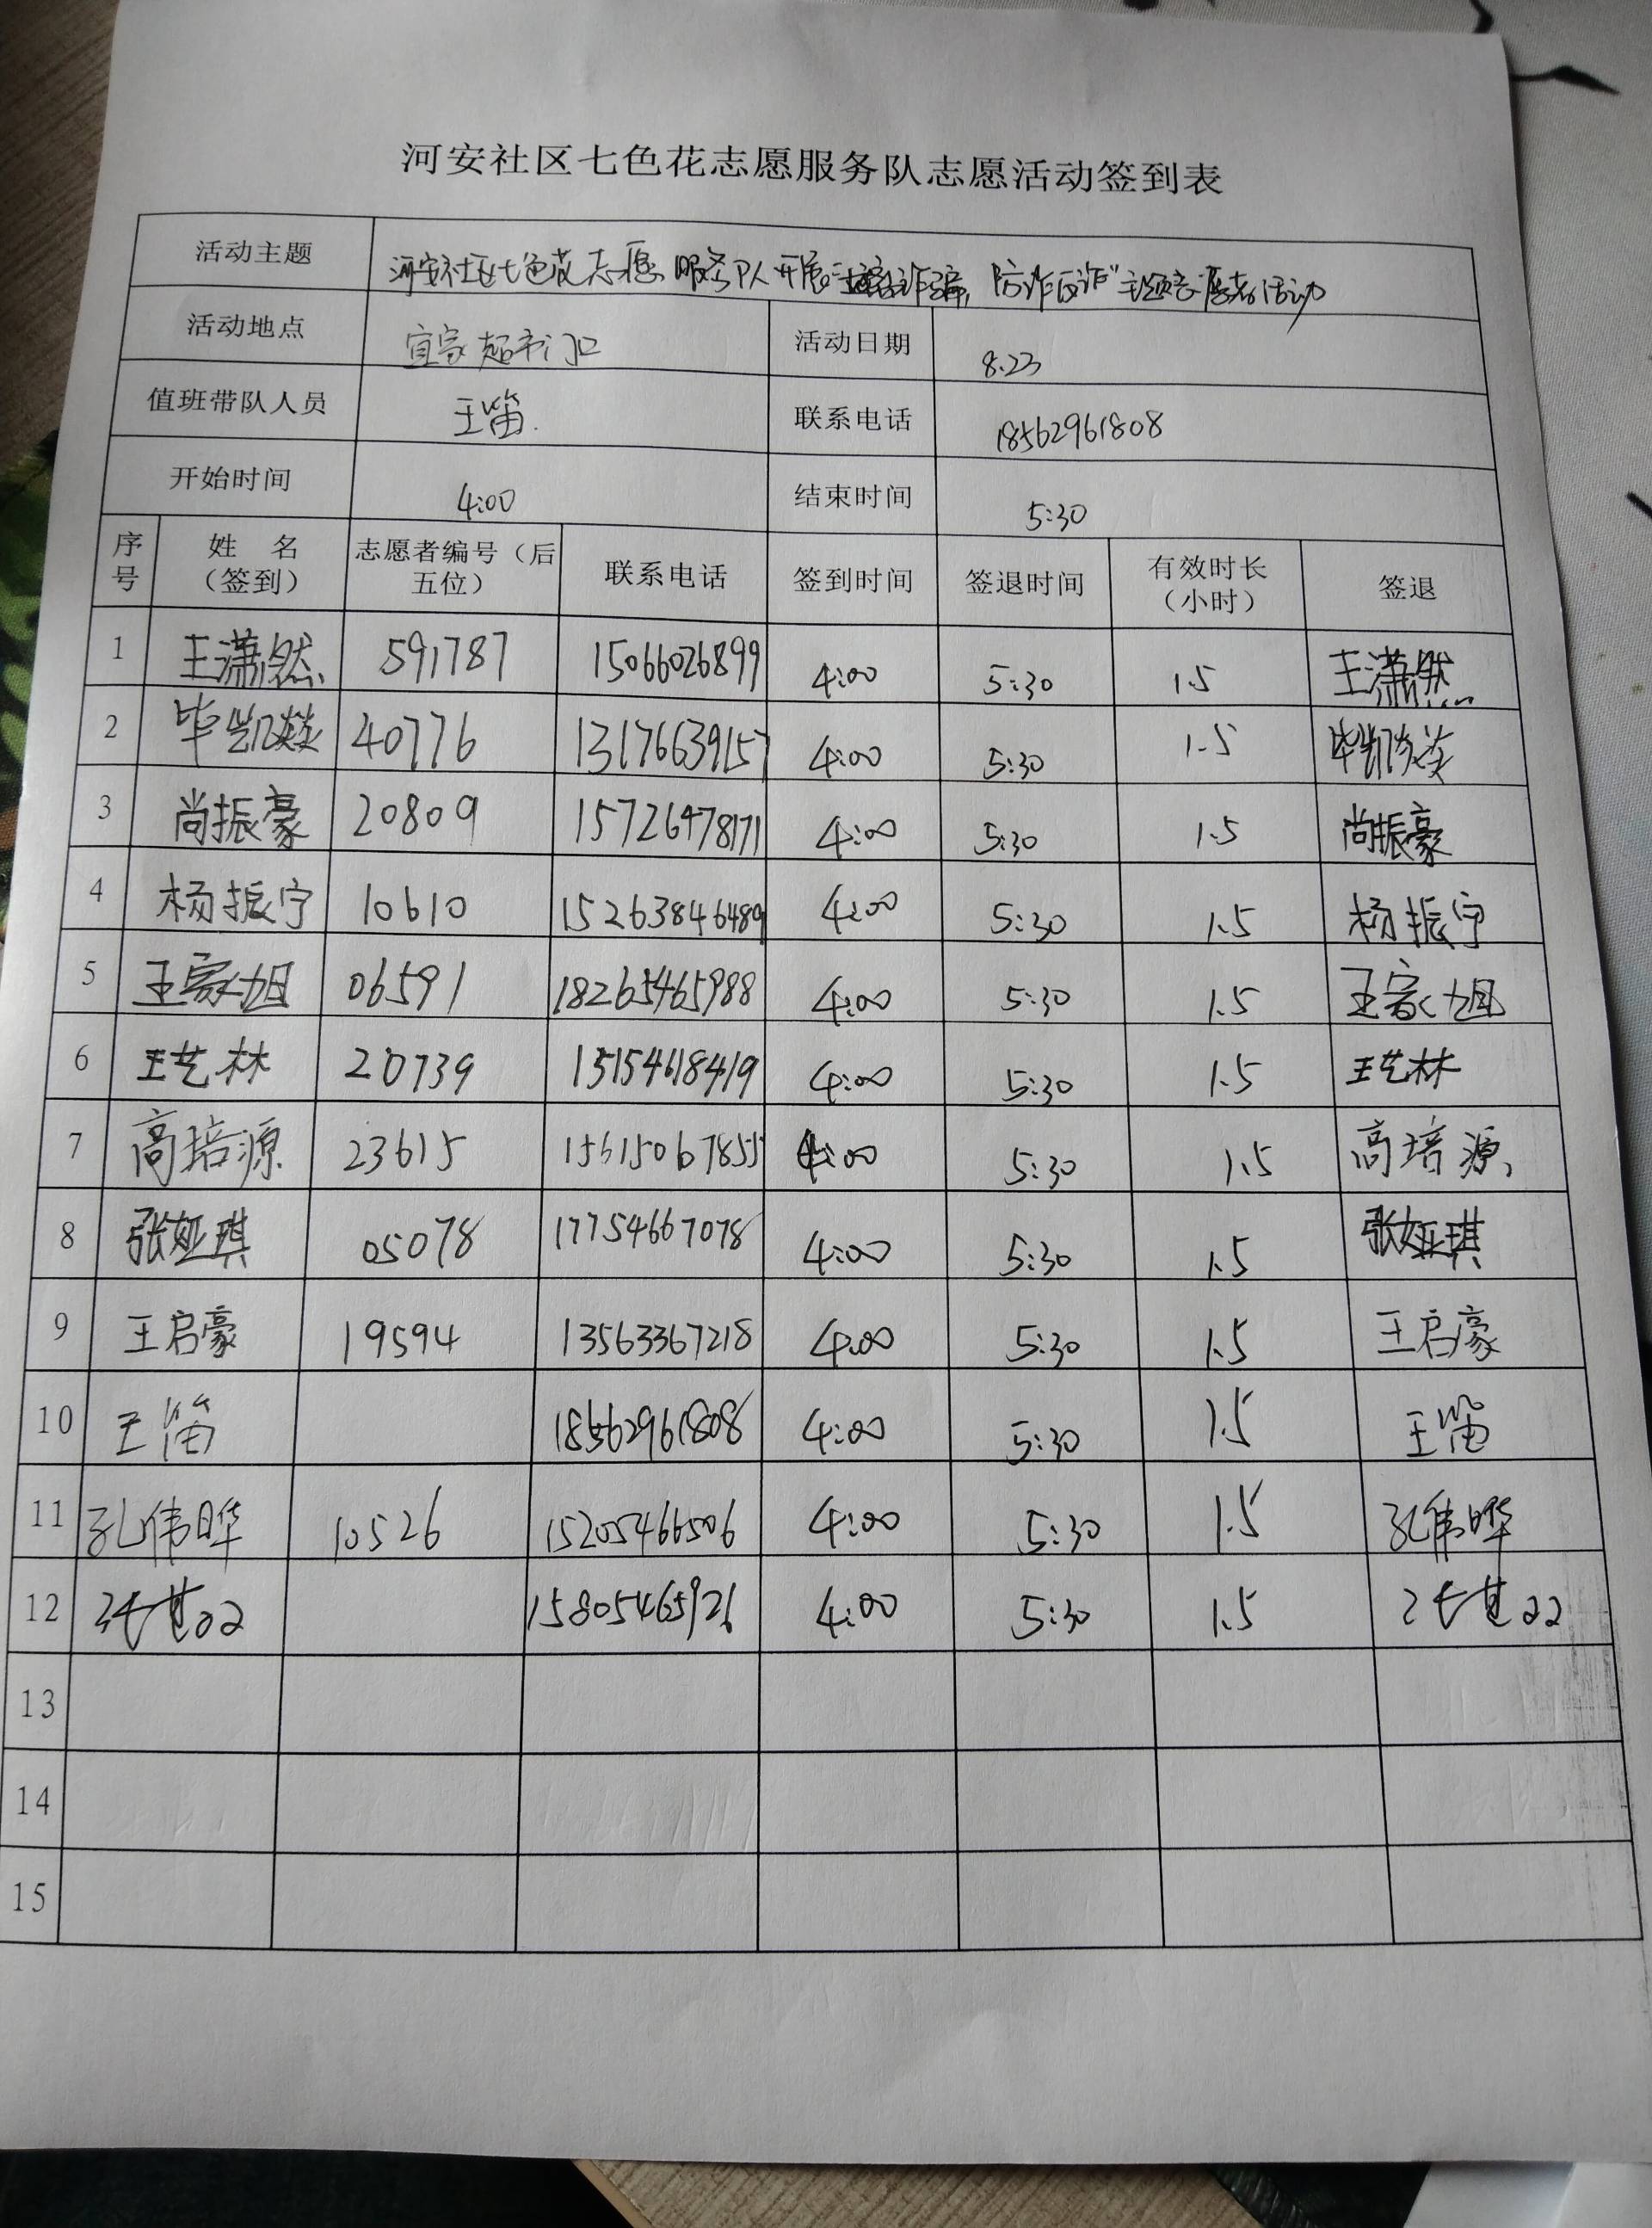 河安社区七色花志愿服务队志愿活动签到表
活动主题 河安社区七色花志愿服务队开展 诈骗，防诈反诈"主题志愿者活动
活动地点 宜家超市门口 活动日期 8.23
值班带队人员 王笛 联系电话 18562961808
开始时间 4:00 结束时间 5:30
序号 姓 名（签到） 志愿者编号（后五位） 联系电话 签到时间 签退时间 有效时长（小时） 签退
1 王潇然 591787 15066026899 4:00 5:30 1.5 王潇然
2 毕凯燚 40776 13176639157 4:00 5:30 1.5 毕凯燚
3 尚振豪 20809 15726478171 4:00 5:30 1.5 尚振豪
4 杨振宇 10610 15263846489 4:00 5:30 1.5 杨振宇
5 王家旭 06591 18265465988 4:00 5:30 1.5 王家旭
6 王艺林 20739 15154618419 4:00 5:30 1.5 王艺林
7 高培源 23615 15615067855 4:00 5:30 1.5 高培源
8 张娅琪 05078 17754667078 4:00 5:30 1.5 张娅琪
9 王启豪 19594 13563367218 4:00 5:30 1.5 王启豪
10 王笛 18562961808 4:00 5:30 1.5 王笛
11 孔伟晔 10526 15205466506 4:00 5:30 1.5 孔伟晔
12 15805465926 4:00 5:30 1.5
13
14
15